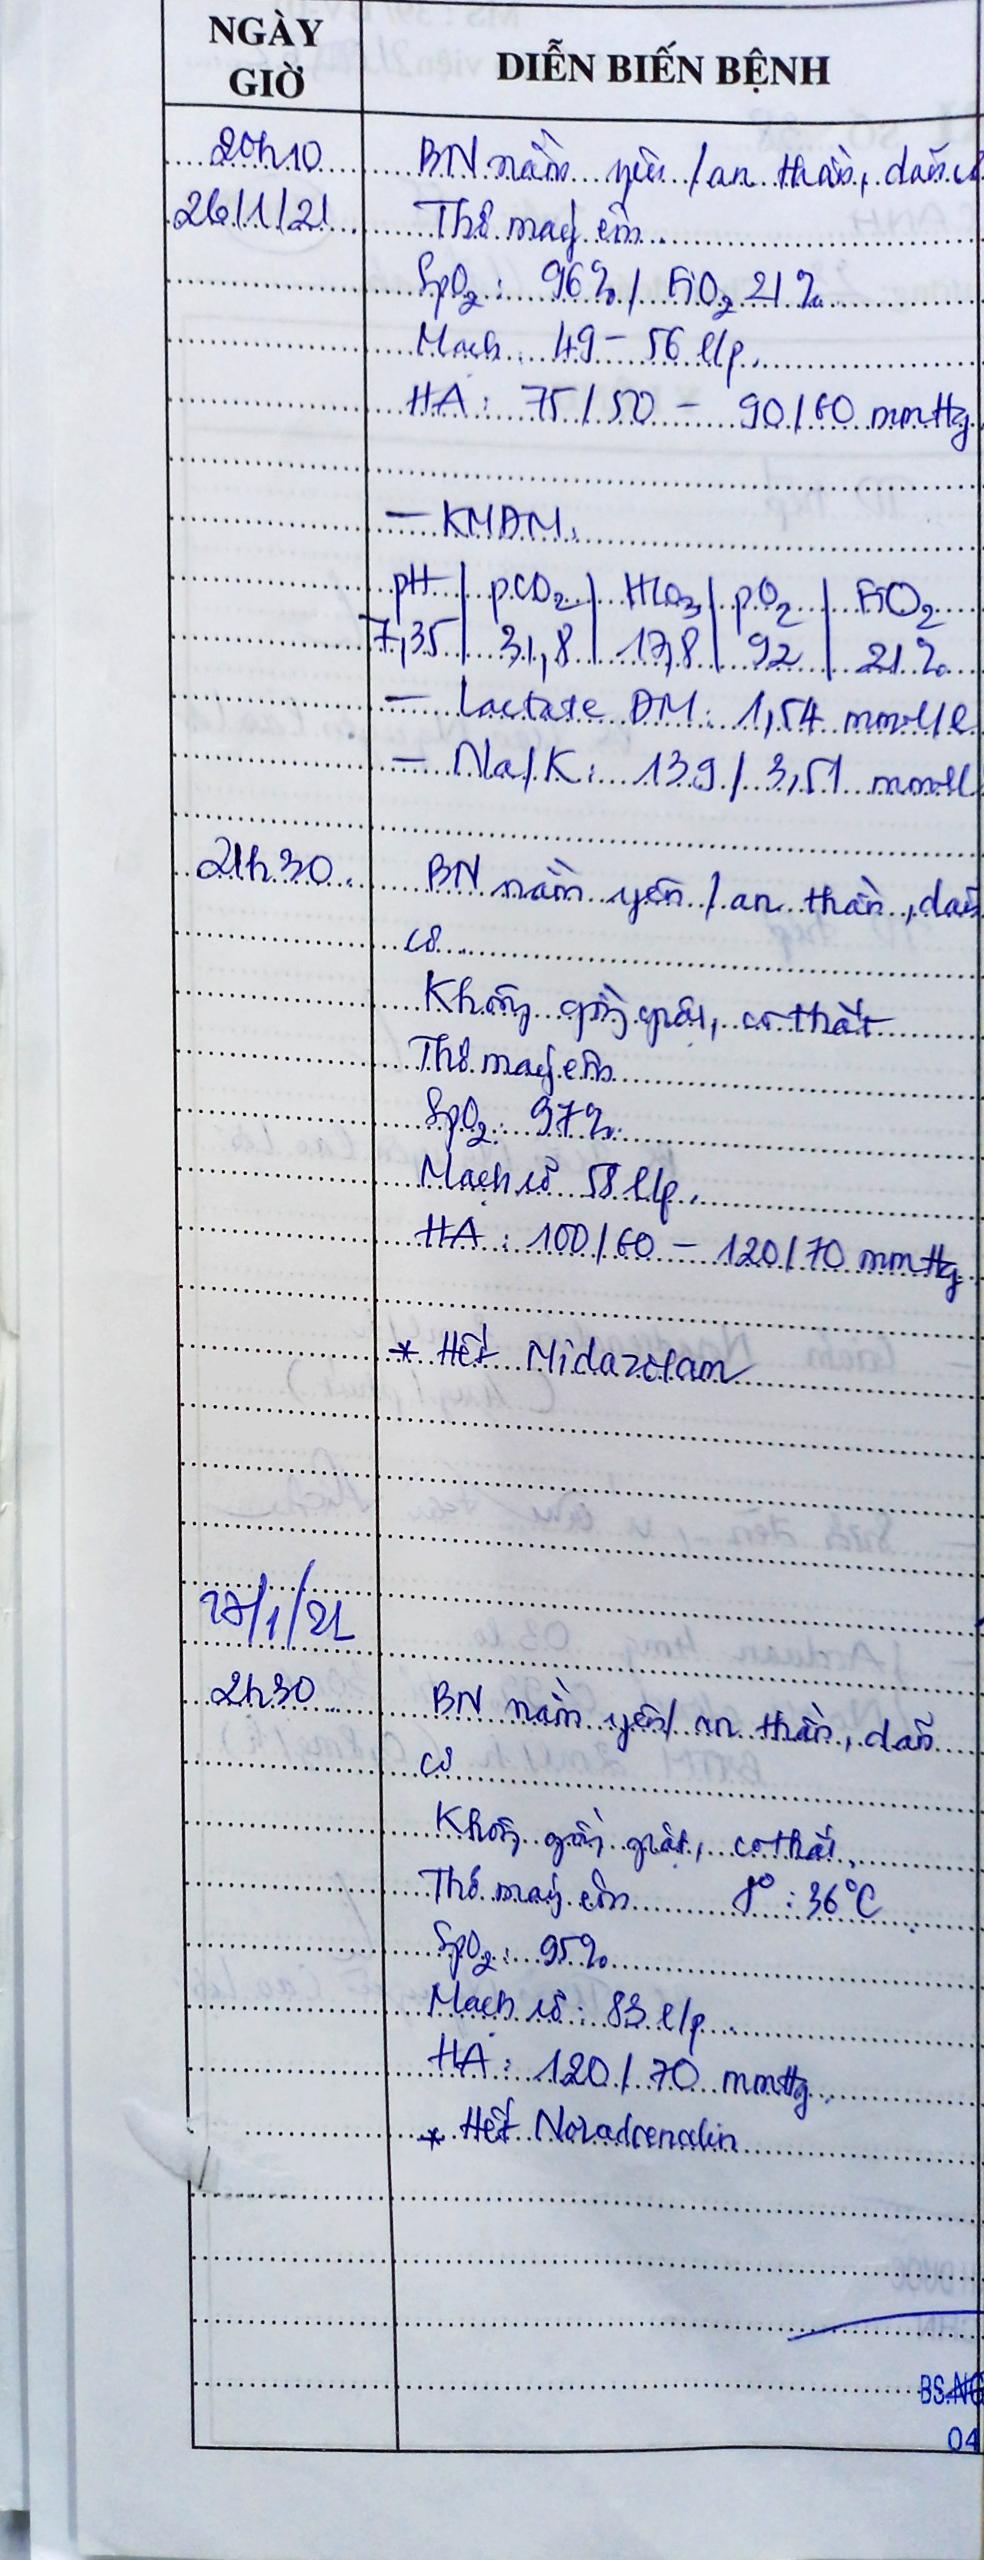 NGÀY GIỜ
DIỄN BIẾN BỆNH
20h10
BN nằm yên / an thần, dãn cơ
26/1/21
Thở máy êm
SpO2: 96% / FiO2 21%
Mạch: 49 - 56 l/p.
HA: 75/50 - 90/60 mmHg
- KMĐM:
pH | pCO2 | HCO3 | pO2 | FiO2
7,35 | 31,8 | 17,8 | 92 | 21%
- Lactate ĐM: 1,54 mmol/l
- Na/K: 139 / 3,51 mmol
21h30
BN nằm yên / an thần, dãn
cơ
Không gồng giật, co thắt
Thở máy êm
SpO2: 97%
Mạch cổ 58 l/p.
HA: 100/60 - 120/70 mmHg
* Hết Midazolam
27/1/21
2h30
BN nằm yên / an thần, dãn
cơ
Không gồng giật, co thắt,
Thở máy êm T°: 36°C
SpO2: 95%
Mạch cổ: 83 l/p
HA: 120/70 mmHg
* Hết Noradrenalin
BS.NG
04